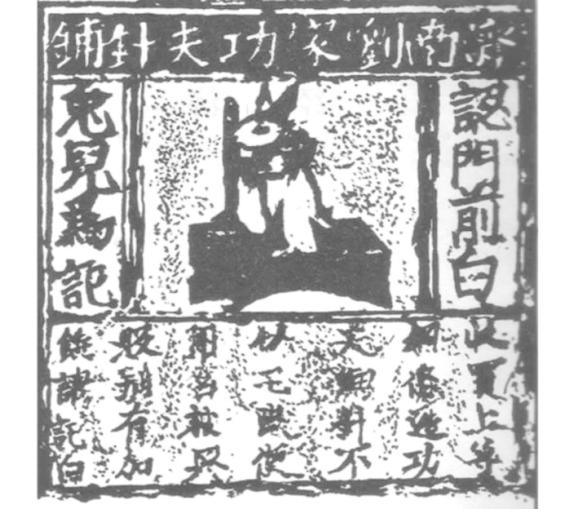 濟南劉家功夫針鋪
認門前白
兔兒為記
收買上等
鋼條造功
夫細針不
使
用
販別有加
饒請記白